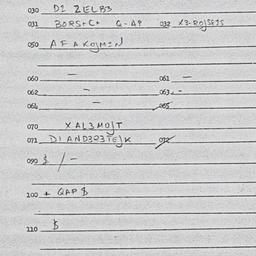 030 DI ZELB3
031 BORS+C+ Q-AP 032 X3-ROJSEJS
050 AFAKOJMIN
060 - 061 -
062 - 063 -
064 - 065
070 XAL3MOJT
071 DI AND3R3TEJK 072
090 $ / -
100 + QAP $
110 $